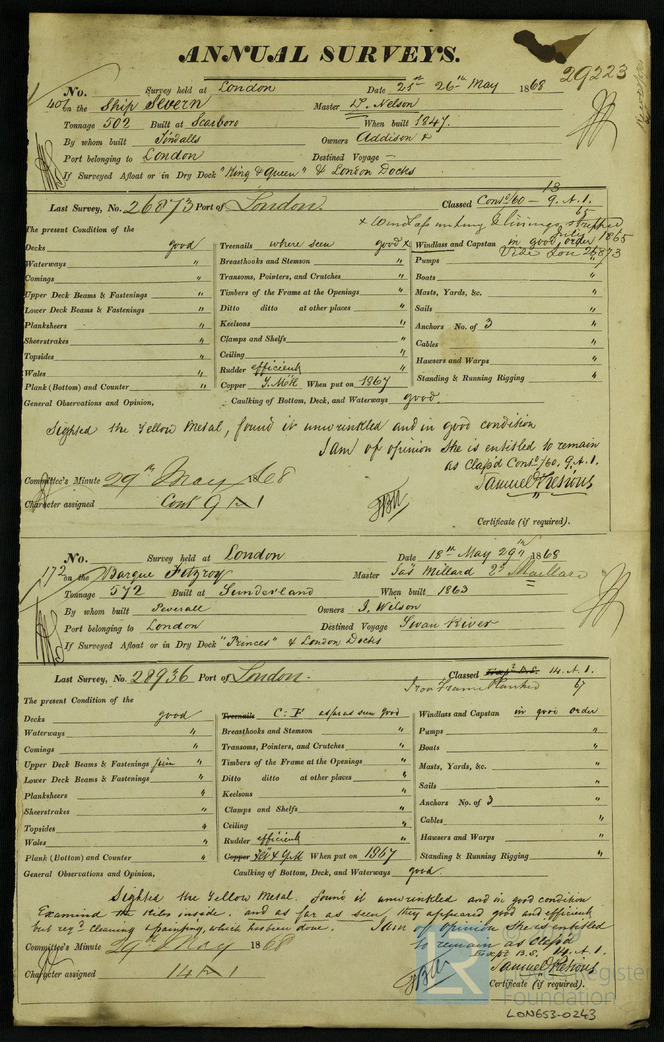 ANNUAL SURVEYS.
29223
No. Survey held at London Date 25th 26th May 1868
401 on the Ship Severn Master D. Nelson
Tonnage 502 Built at Scarboro When built 1847.
By whom built Tindalls Owners Addison &
Port belonging to London Destined Voyage –
If Surveyed Afloat or in Dry Dock "King & Queen" & London Docks
Last Survey, No. 26873 Port of London. Classed Contd/60 – 9. A.1.
13
65
x Windlass unhung & linings stripped
July 1865
Vide Lon 26873
The present Condition of the
Decks good Treenails where seen good x Windlass and Capstan in good order
Waterways " Breasthooks and Stemson " Pumps "
Comings " Transoms, Pointers, and Crutches " Boats "
Upper Deck Beams & Fastenings " Timbers of the Frame at the Openings " Masts, Yards, &c. "
Lower Deck Beams & Fastenings " Ditto ditto at other places " Sails "
Planksheers " Keelsons " Anchors No. of 3 "
Sheerstrakes " Clamps and Shelfs " Cables "
Topsides " Ceiling " Hawsers and Warps "
Wales " Rudder efficient Standing & Running Rigging "
Plank (Bottom) and Counter " Copper Y. Met When put on 1867
General Observations and Opinion, Caulking of Bottom, Deck, and Waterways good.
Sighted the Yellow Metal, found it unwrinkled and in good condition
I am of opinion She is entitled to remain
as Class'd Contd/60. 9. A.1.
Samuel Presious
Committee's Minute 29th May 1868
Character assigned Contd 9 A 1
Certificate (if required).
No. Survey held at London Date 18th May 29th 1868
172 on the Barque Fitzroy Master Jas Millard
Tonnage 572 Built at Sunderland When built 1863
By whom built Peverall Owners J. Wilson
Port belonging to London Destined Voyage Swan River
If Surveyed Afloat or in Dry Dock "Princes" & London Docks
Last Survey, No. 28936 Port of London. Classed Exp. B.S. 14. A.1.
Iron Frame Planked 67
The present Condition of the
Decks good Treenails C. F as far as seen good Windlass and Capstan in good order
Waterways " Breasthooks and Stemson " Pumps "
Comings " Transoms, Pointers, and Crutches " Boats "
Upper Deck Beams & Fastenings " Timbers of the Frame at the Openings " Masts, Yards, &c. "
Lower Deck Beams & Fastenings " Ditto ditto at other places " Sails "
Planksheers " Keelsons " Anchors No. of 3 "
Sheerstrakes " Clamps and Shelfs " Cables "
Topsides " Ceiling " Hawsers and Warps "
Wales " Rudder efficient Standing & Running Rigging "
Plank (Bottom) and Counter " Copper & Y.M When put on 1867
General Observations and Opinion, Caulking of Bottom, Deck, and Waterways good.
Sighted the Yellow Metal. found it unwrinkled and in good condition
Examined the Ribs inside. and as far as seen they appeared good and efficient
but reqd cleaning & painting, which has been done. I am of opinion She is entitled
to remain as Class'd
Exp. B.S. 14. A.1.
Samuel Presious
Committee's Minute 29th May 1868
Character assigned 14 A 1
Certificate (if required).
LR Lloyd's Register Foundation
LON653-0243